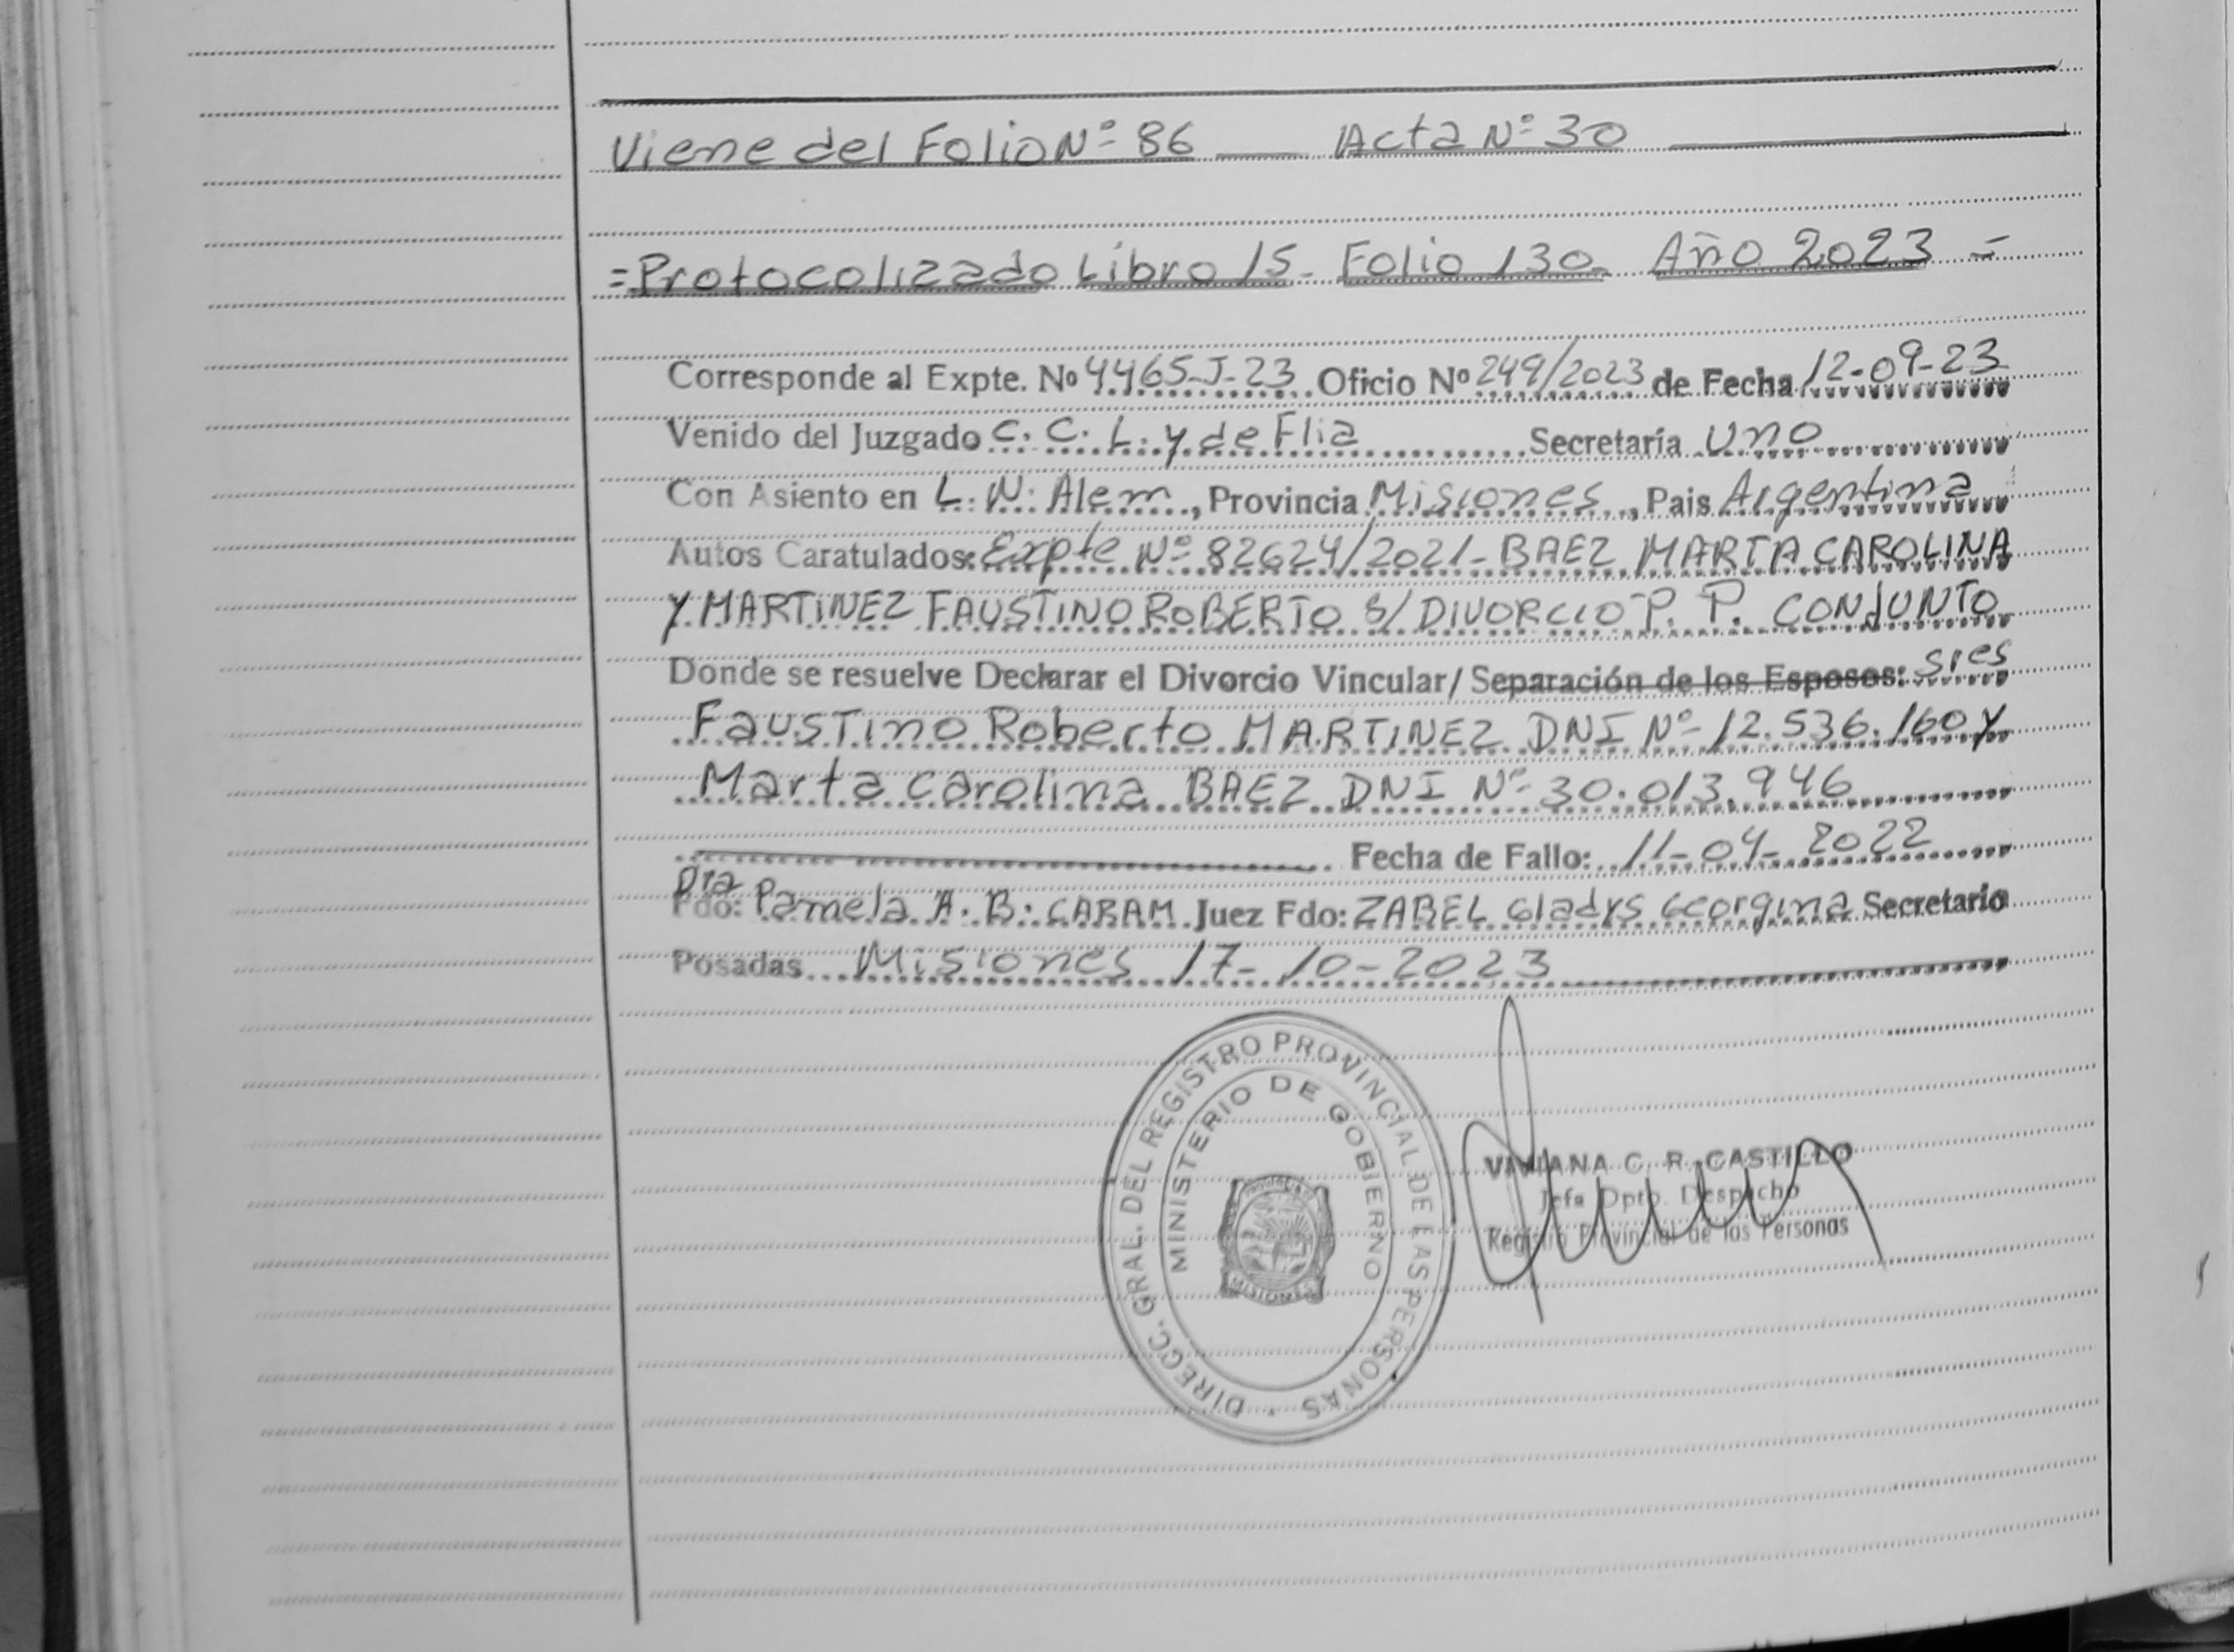 Viene del Folio Nº 86 Acta Nº 30
=Protocolizado Libro 15. Folio 130. Año 2023 =
Corresponde al Expte. Nº 4465-J-23 Oficio Nº 249/2023 de Fecha 12-09-23
Venido del Juzgado C. C. L. y de Flia Secretaría Uno
Con Asiento en L. N. Alem, Provincia Misiones, Pais Argentina
Autos Caratulados: Expte Nº 82624/2021- BAEZ MARTA CAROLINA
Y MARTINEZ FAUSTINO ROBERTO S/ DIVORCIO P. P. CONJUNTO
Donde se resuelve Declarar el Divorcio Vincular/ Separación de los Esposos: sres
Faustino Roberto MARTINEZ DNI Nº 12.536.160 y
Marta Carolina BAEZ DNI Nº 30.013.946
Fecha de Fallo: 11-04-2022
Dra
Fdo: Pamela A. B. CARAM Juez Fdo: ZABEL Gladys Georgina Secretario
Posadas Misiones 17-10-2023
DIRECC. GRAL. DEL REGISTRO PROVINCIAL DE LAS PERSONAS
MINISTERIO DE GOBIERNO
MISIONES
VIVIANA C. R. CASTILLO
Jefa Dpto. Despacho
Registro Provincial de las Personas